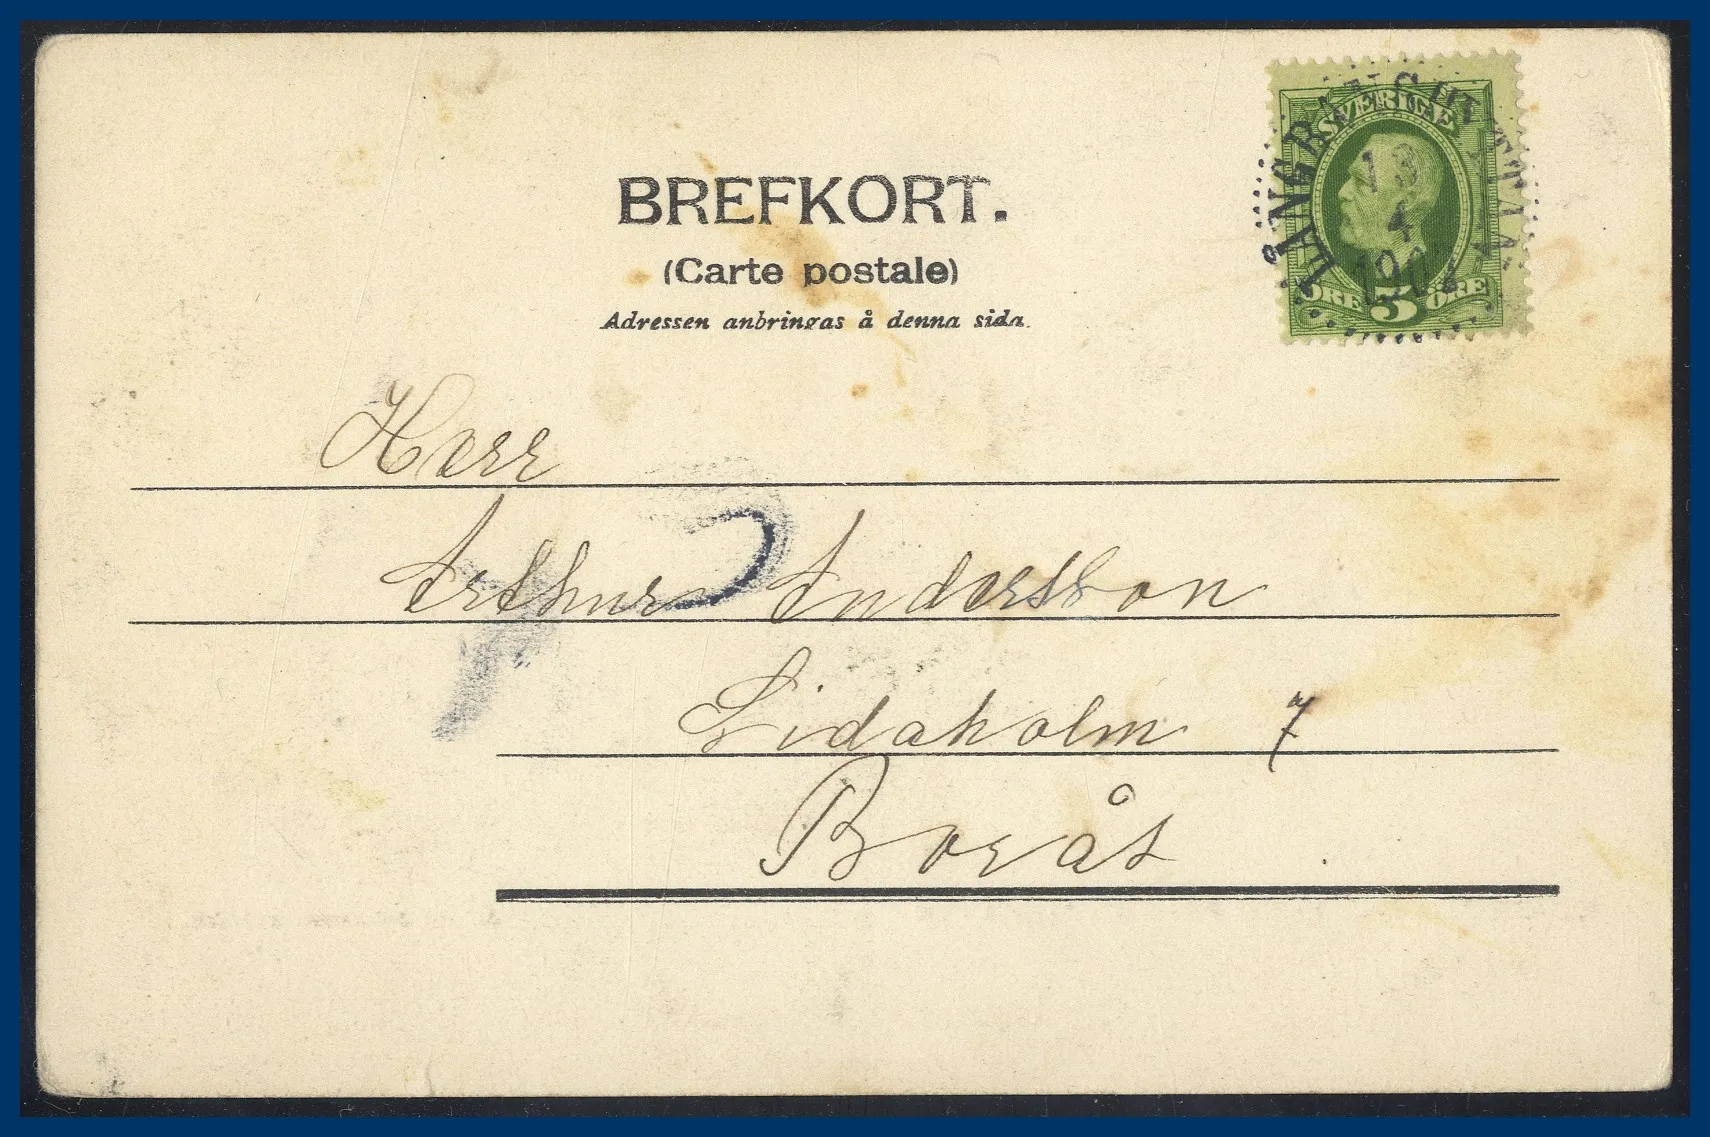 SVERIGE
13
4
1902
5
ÖRE ÖRE
BREFKORT.
(Carte postale)
Adressen anbringas å denna sida.
Herr
Arthur Andersson
Lidaholm 7
Borås